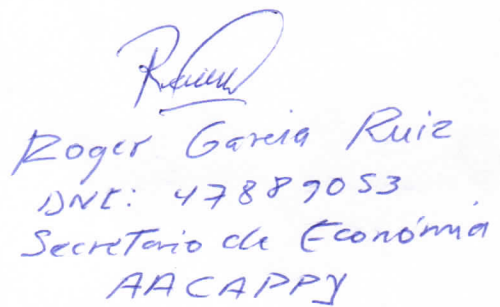 Roger Garcia Ruiz
DNI: 47889053
Secretario de Económia
AACAPPY